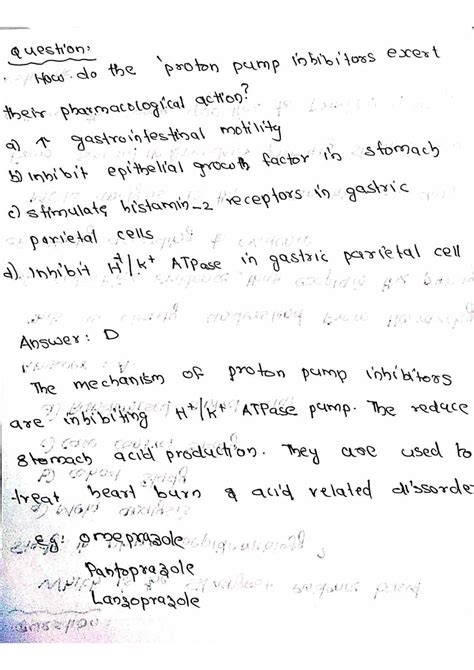 Question:
How do the proton pump inhibitors exert
their pharmacological action?
a) ↑ gastrointestinal motility
b) Inhibit epithelial growth factor in stomach
c) stimulate histamin-2 receptors in gastric
parietal cells
d). Inhibit H+/K+ ATPase in gastric parietal cell
Answer: D
The mechanism of proton pump inhibitors
are inhibiting H+/K+ ATPase pump. The reduce
stomach acid production. They are used to
treat heart burn & acid related dissorde
Eg: omeprazole
Pantoprazole
Lanzoprazole